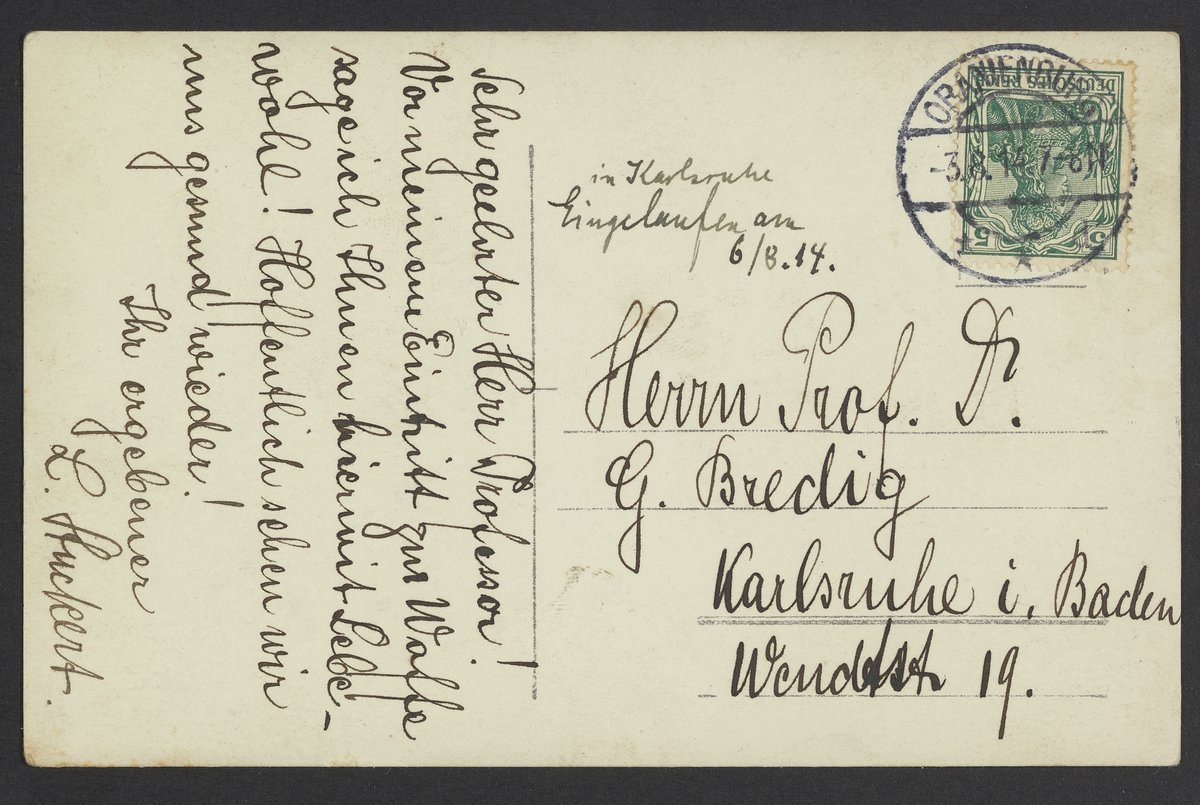 Sehr geehrter Herr Professor!
Vor meinem Eintritt zur Waffe
sage ich Ihnen hiermit Lebe-
wohl! Hoffentlich sehen wir
uns gesund wieder!
Ihr ergebener
L. Huckert.
in Karlsruhe
Eingelaufen am
6/8.14.
ORANIENBURG
-3.8.14. 7-8N
DEUTSCHES REICH
5 5
Herrn Prof. Dr.
G. Bredig
Karlsruhe i. Baden
Wendtstr 19.